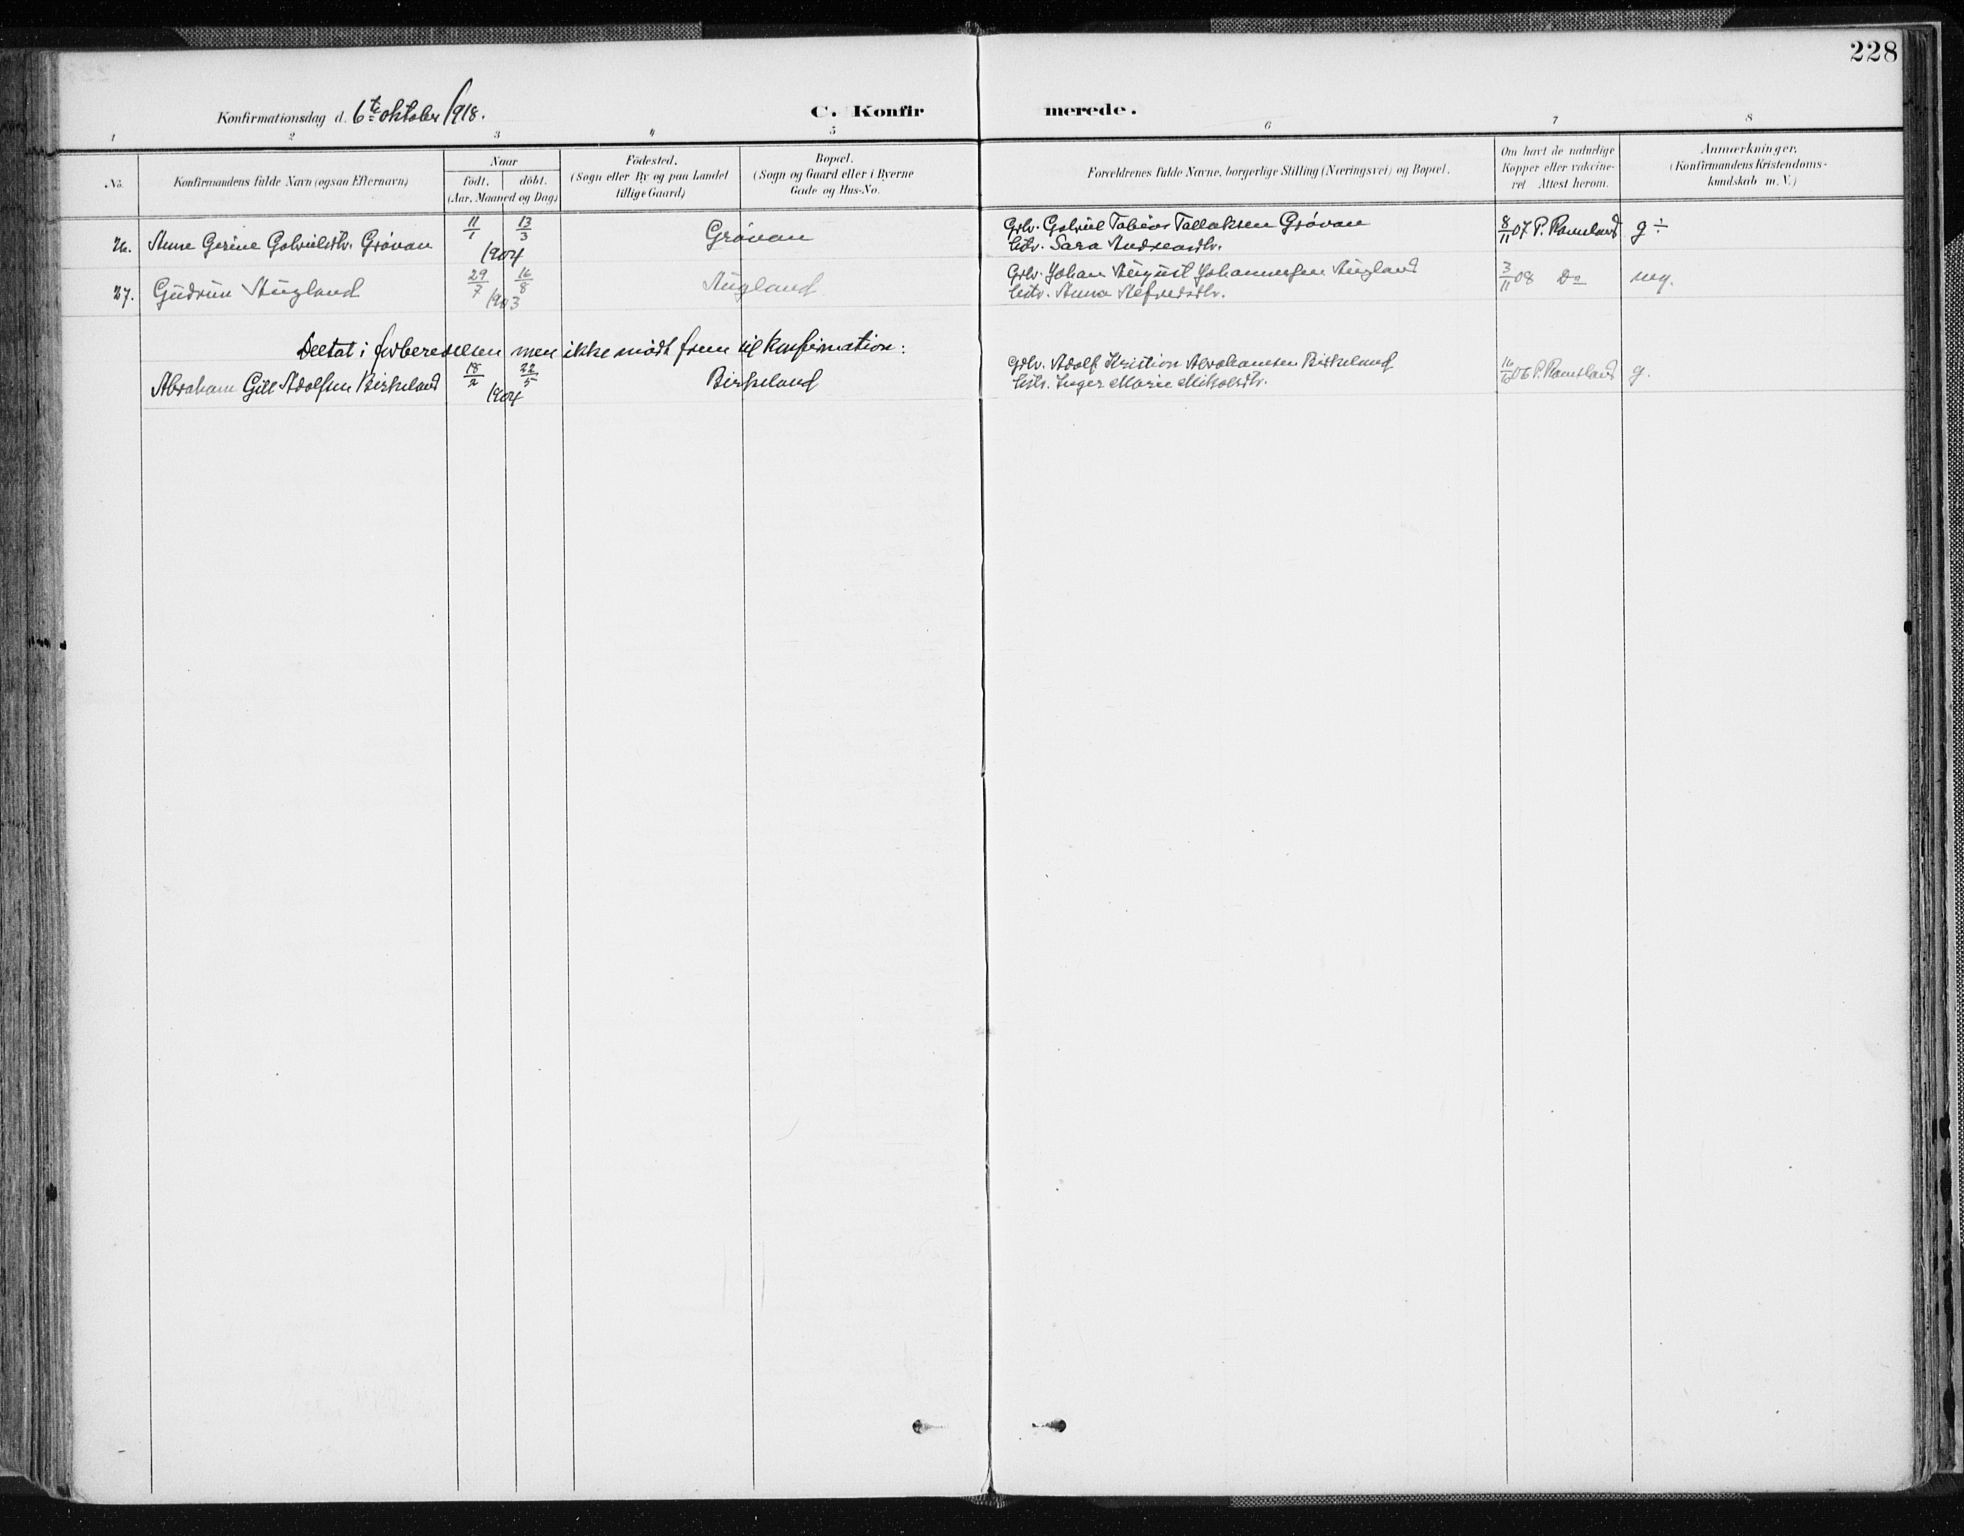 228
Konfirmationsdag d. 6te oktober 1918.
C. Konfirmerede.
1 2 3 4 5 6 7 8
No.
Konfirmandens fulde Navn (ogsaa Efternavn)
Naar
födt. döbt.
(Aar, Maaned og Dag)
Födested.
(Sogn eller By og paa Landet
tillige Gaard)
Bopæl.
(Sogn og Gaard eller i Byerne
Gade og Hus-No.
Forældrenes fulde Navne, borgerlige Stilling (Næringsvei) og Bopæl.
Om havt de naturlige
Kopper eller vakcine-
ret Attest herom.
Anmærkninger,
(Konfirmandens Kristendoms-
kundskab m. V.)
26. Anne Gerine Gabrielsdtr. Grövan 11/1 13/3 1904 Grövan Grbr. Gabriel Tobias Tallaksen Grövan 8/11 07 P. Ramsland g ÷
Sara Andreasdtr.
27. Gudrun Augland 29/7 16/8 1903 Augland Grbr. Johan August Johannesen Augland 3/11 08 Do mg.
Anna Alfredsdtr.
Deltat i forberedelsen men ikke mödt frem til konfirmation:
Abraham Gill Adolfsen Birkeland 18/2 22/5 1904 Birkeland Grbr. Adolf Kristian Abrahamsen Birkeland 16/10 06 P. Ramsland g.
Inger Marie Mikalsdtr.